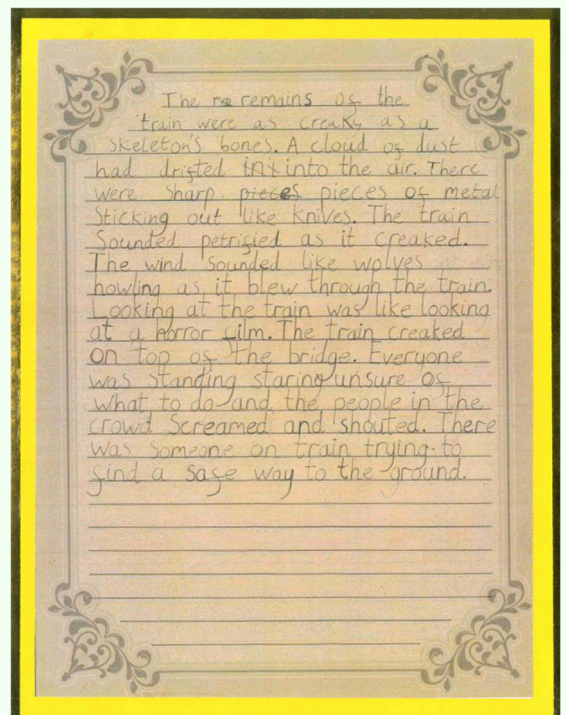 The remains of the
train were as creaky as a
skeleton's bones. A cloud of dust
had drifted into the air. There
were sharp pieces pieces of metal
Sticking out like knives. The train
Sounded petrified as it creaked.
The wind sounded like wolves
howling as it blew through the train.
Looking at the train was like looking
at a horror film. The train creaked
on top of the bridge. Everyone
was standing staring unsure of
what to do and the people in the
crowd Screamed and shouted. There
was someone on train trying to
find a safe way to the ground.